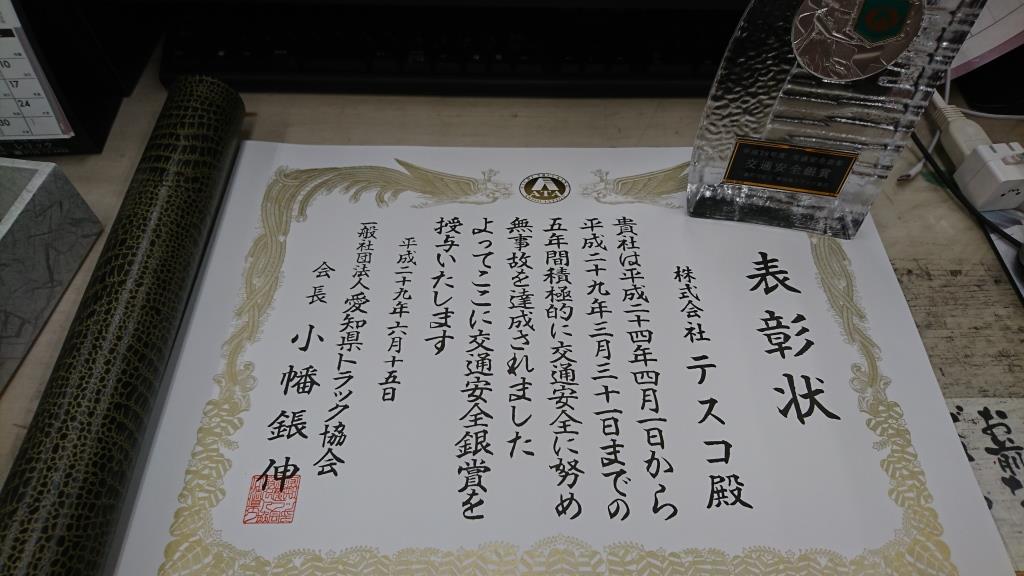 表彰状
株式会社 テスコ殿
貴社は平成二十四年四月一日から
平成二十九年三月三十一日までの
五年間積極的に交通安全に努め
無事故を達成されました
よってここに交通安全銀賞を
授与いたします
平成二十九年六月十五日
一般社団法人愛知県トラック協会
会長 小幡鋹伸
交通安全銀賞
10
17
24
30
お前